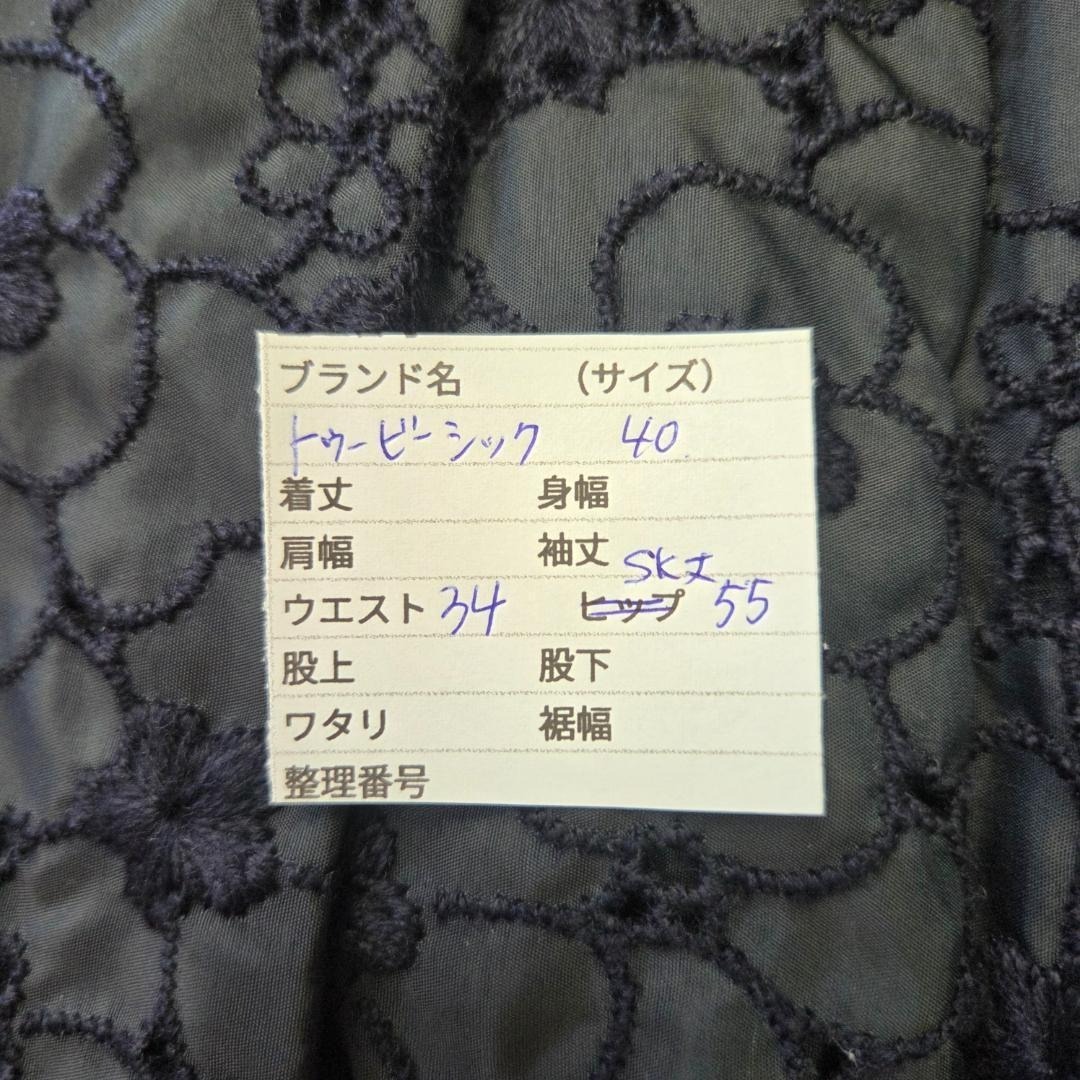 ブランド名 (サイズ)
トゥービーシック 40
着丈 身幅
肩幅 袖丈
SK丈
ウエスト 34 ヒップ 55
股上 股下
ワタリ 裾幅
整理番号